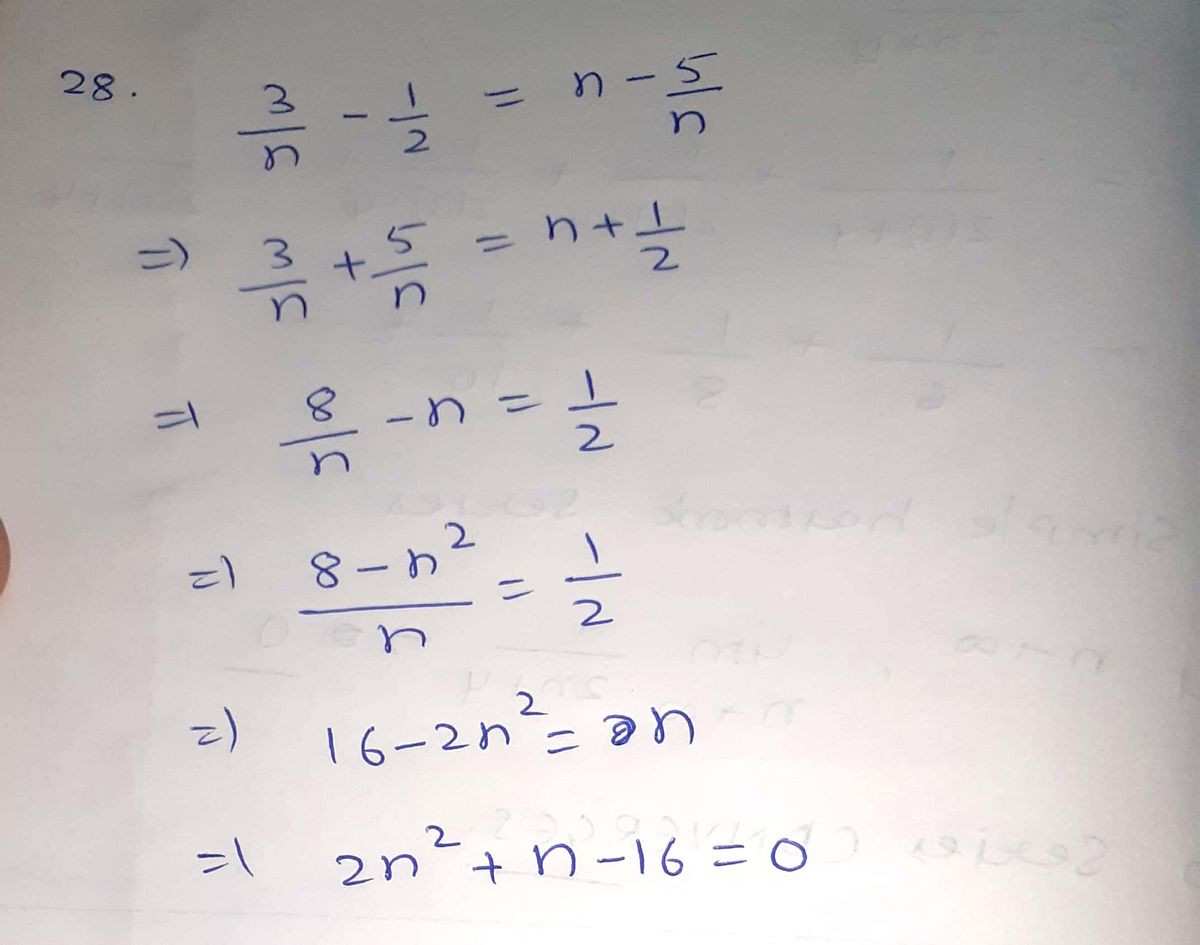 28. 3/n - 1/2 = n - 5/n
=) 3/n + 5/n = n + 1/2
=) 8/n - n = 1/2
=) (8 - n²)/n = 1/2
=) 16 - 2n² = n
=) 2n² + n - 16 = 0